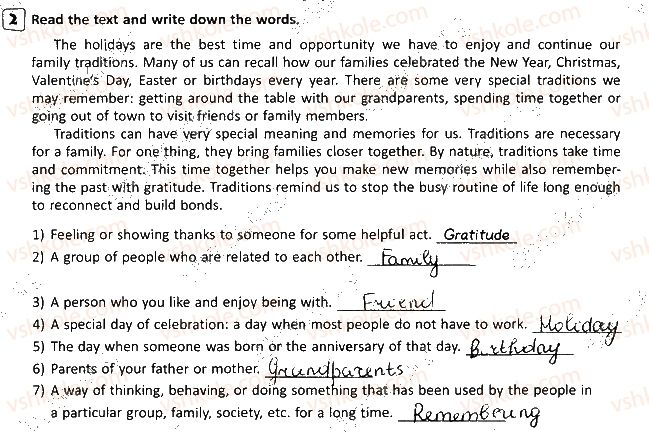 2 Read the text and write down the words.
The holidays are the best time and opportunity we have to enjoy and continue our
family traditions. Many of us can recall how our families celebrated the New Year, Christmas,
Valentine's Day, Easter or birthdays every year. There are some very special traditions we
may remember: getting around the table with our grandparents, spending time together or
going out of town to visit friends or family members.
Traditions can have very special meaning and memories for us. Traditions are necessary
for a family. For one thing, they bring families closer together. By nature, traditions take time
and commitment. This time together helps you make new memories while also remember-
ing the past with gratitude. Traditions remind us to stop the busy routine of life long enough
to reconnect and build bonds.
1) Feeling or showing thanks to someone for some helpful act. Gratitude
2) A group of people who are related to each other. Family
3) A person who you like and enjoy being with. Friend
4) A special day of celebration: a day when most people do not have to work. Holiday
5) The day when someone was born or the anniversary of that day. Birthday
6) Parents of your father or mother. Grandparents
7) A way of thinking, behaving, or doing something that has been used by the people in
a particular group, family, society, etc. for a long time. Remembering